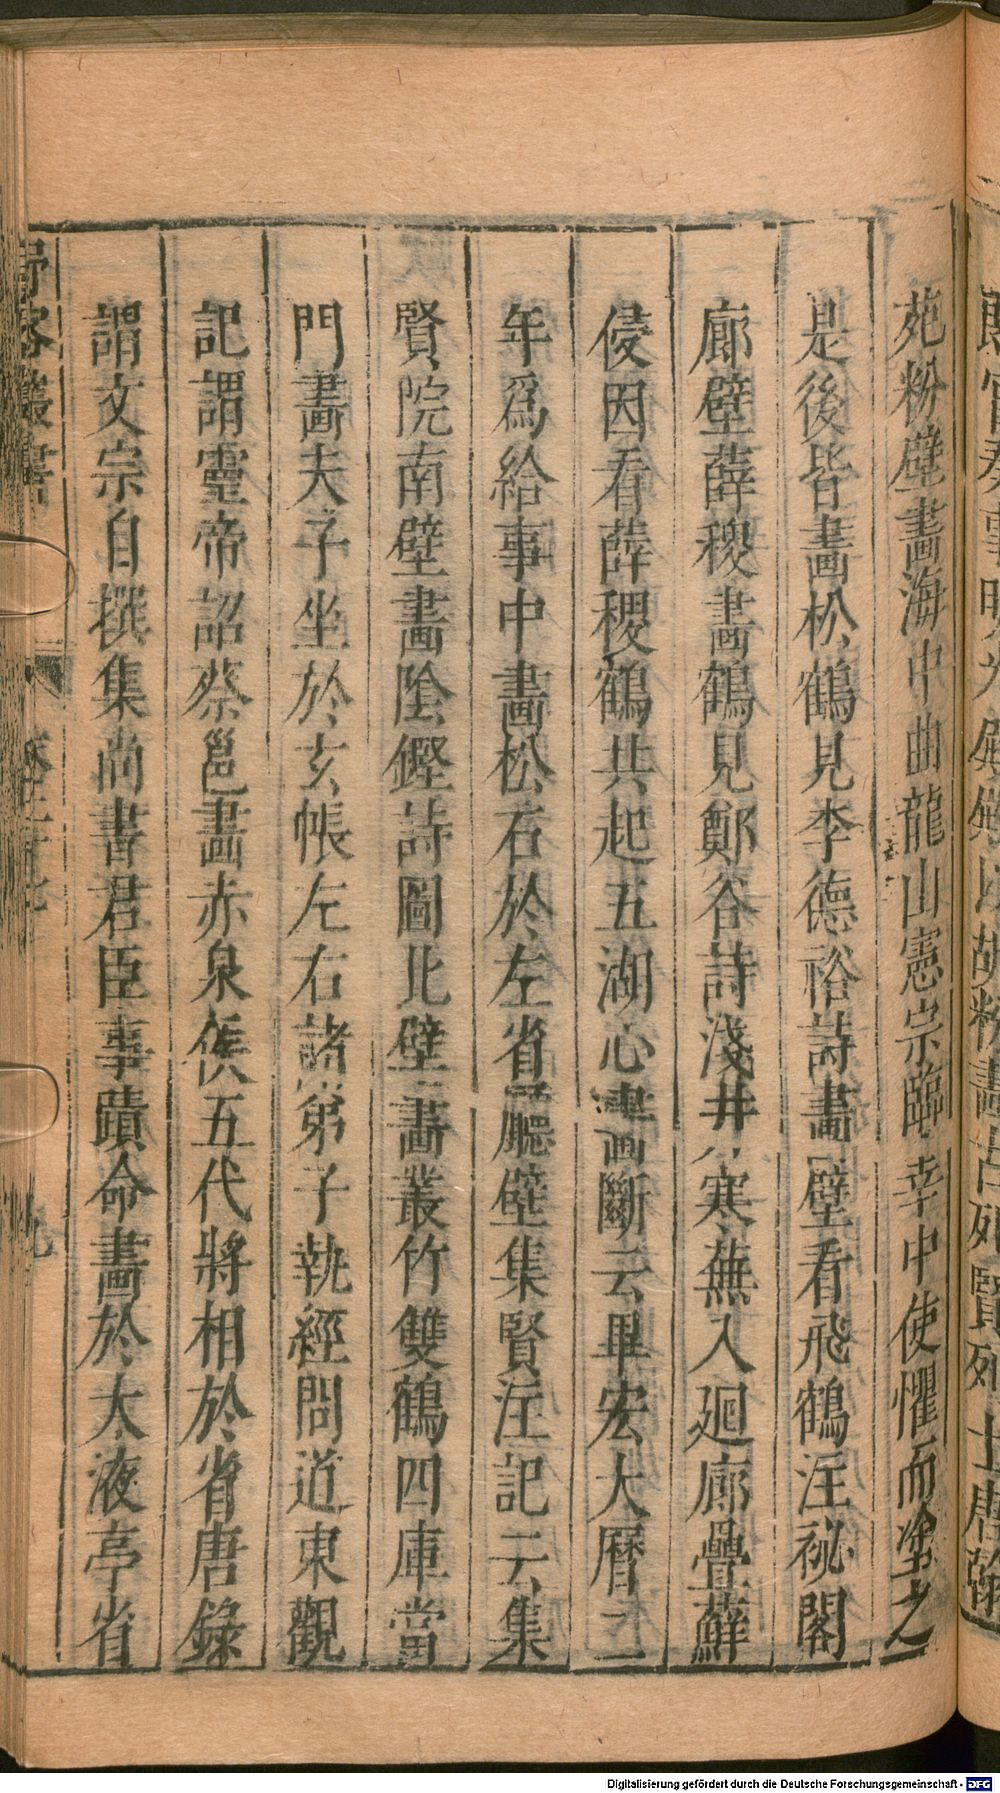 苑粉壁畫海中曲龍山憲宗臨幸中使懼而塗之
是後皆畫松鶴見李德裕詩畫壁看飛鶴注祕閣
廊壁薛稷畫鶴見鄭谷詩淺井寒蕪入廻廊疊蘚
侵因看薛稷鶴共起五湖心畫斷云畢宏大曆二
年爲給事中畫松石於左省廳壁集賢注記云集
賢院南壁畫陰鏗詩圖北壁畫叢竹雙鶴四庫當
門畫夫子坐於玄帳左右諸弟子執經問道東觀
記謂靈帝詔蔡邕畫赤泉侯五代將相於省唐錄
謂文宗自撰集尚書君臣事蹟命畫於太液亭省
Digitalisierung gefördert durch die Deutsche Forschungsgemeinschaft - DFG